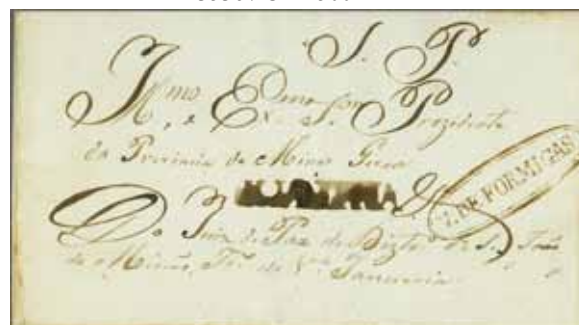 S. P.
Illmo, e Exmo Snr. Prezidente
da Provincia de Minas Geraes
V. DE FORMIGAS
Do Juiz de Paz do Distro de S. João
de Missões, Tro de Va Januaria